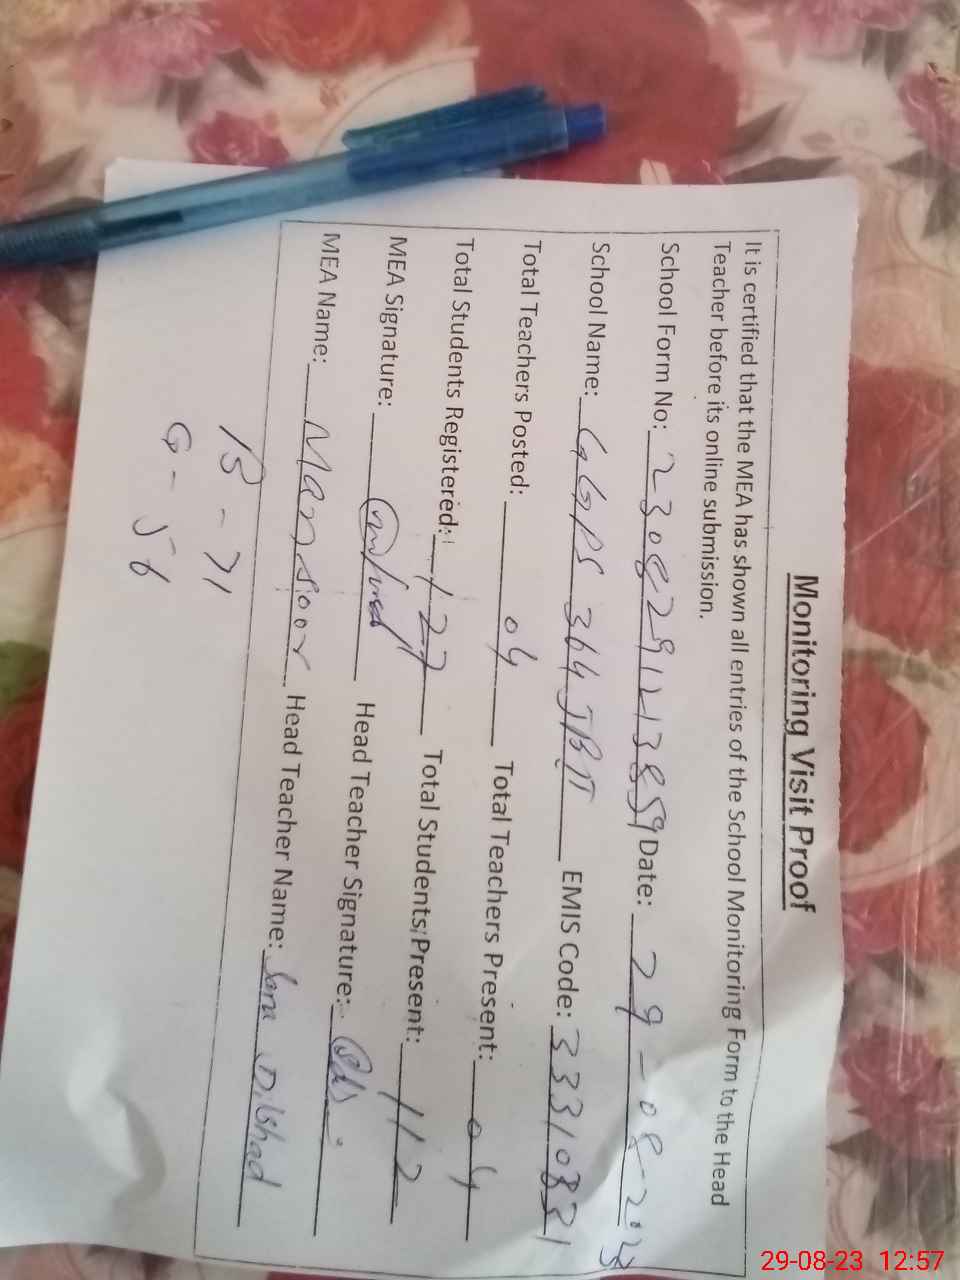 Monitoring Visit Proof
It is certified that the MEA has shown all entries of the School Monitoring Form to the Head
Teacher before its online submission.
School Form No: 2308291213859 Date: 29-08-2023
School Name: GGPS 364 JB II EMIS Code: 33310831
Total Teachers Posted: 04 Total Teachers Present: 04
Total Students Registered: 127 Total Students Present: 112
MEA Signature: Head Teacher Signature:
MEA Name: Mansoor Head Teacher Name: Dilshad
B - 71
G - 56
29-08-23 12:57